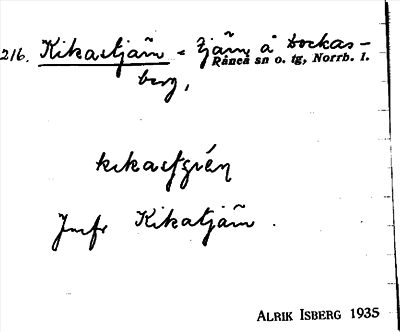 216. Kikastjärn = tjärn å Bockas-
Råneå sn o. tg, Norrb. l.
berg,
kikastjɛ́n
Jmfr Kikatjärn.
ALRIK ISBERG 1935